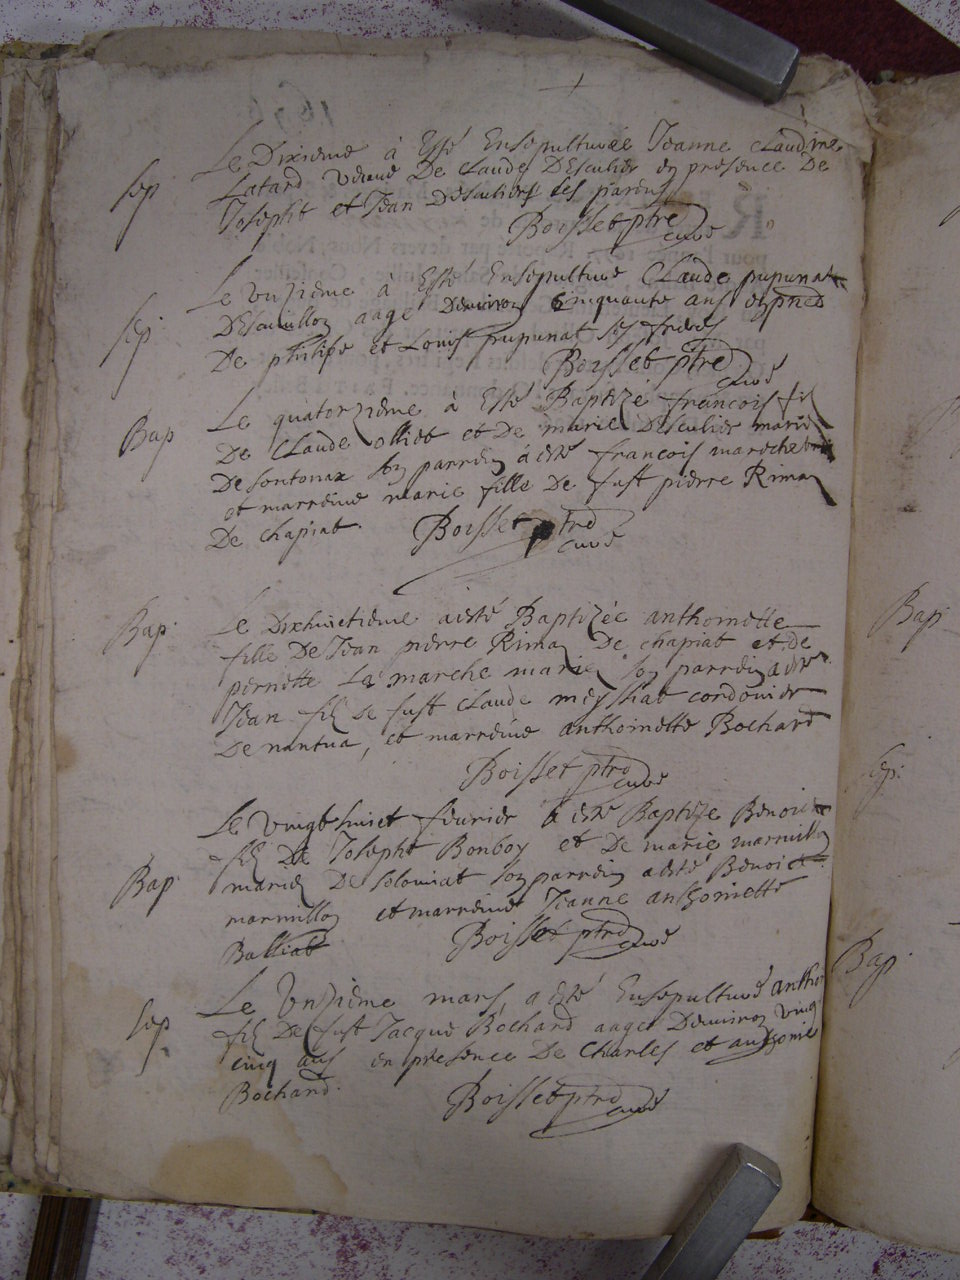 Sep
Le Dixieme à Esté Ensepulturée Jeanne Claudine
Latard veuve De Claude Desculier en presence De
Josepht et Jean Desculiers ses parens
Boisset ptre
curé
Sep
Le unzieme à Esté Ensepulturé Claude pupunat
aagé Denviron Cinquante ans en pnce
De philipe et Louis pupunat ses freres
Boisset ptre
curé
Bap
Le quatorzieme à Esté Baptizé francois fil
De Claude olliet et De marie Desculier mariés
De sontonax son parrein à esté francois
et marreine marie fille De fust pierre Riman
De chapiat. Boisset ptre
curé
Bap
Le Dixhuictieme a esté Baptizée anthoinette
fille De Jean pierre Riman De chapiat et de
pernette La marche mariés son parrein a esté
Jean filz de fust Claude meyssiat cordonier
De nantua, et marreine anthoinette Bochard
Boisset ptre
curé
Bap
Le vingt huict feuvrier à esté Baptize Benoict
filz De Josepht Bonboy et De marie marmillon
mariez De solomiat son parrein a esté Benoict
marmillon et marreine Jeanne anthoinette
Balliat Boisset ptre
curé
Sep
Le Unzieme mars a esté Ensepulturé
filz De fust Jacque Bochard aagé Denviron vingt
cinq ans en presence De Charles et anthoine
Bochard Boisset ptre
curé
Bap
Sep
Bap